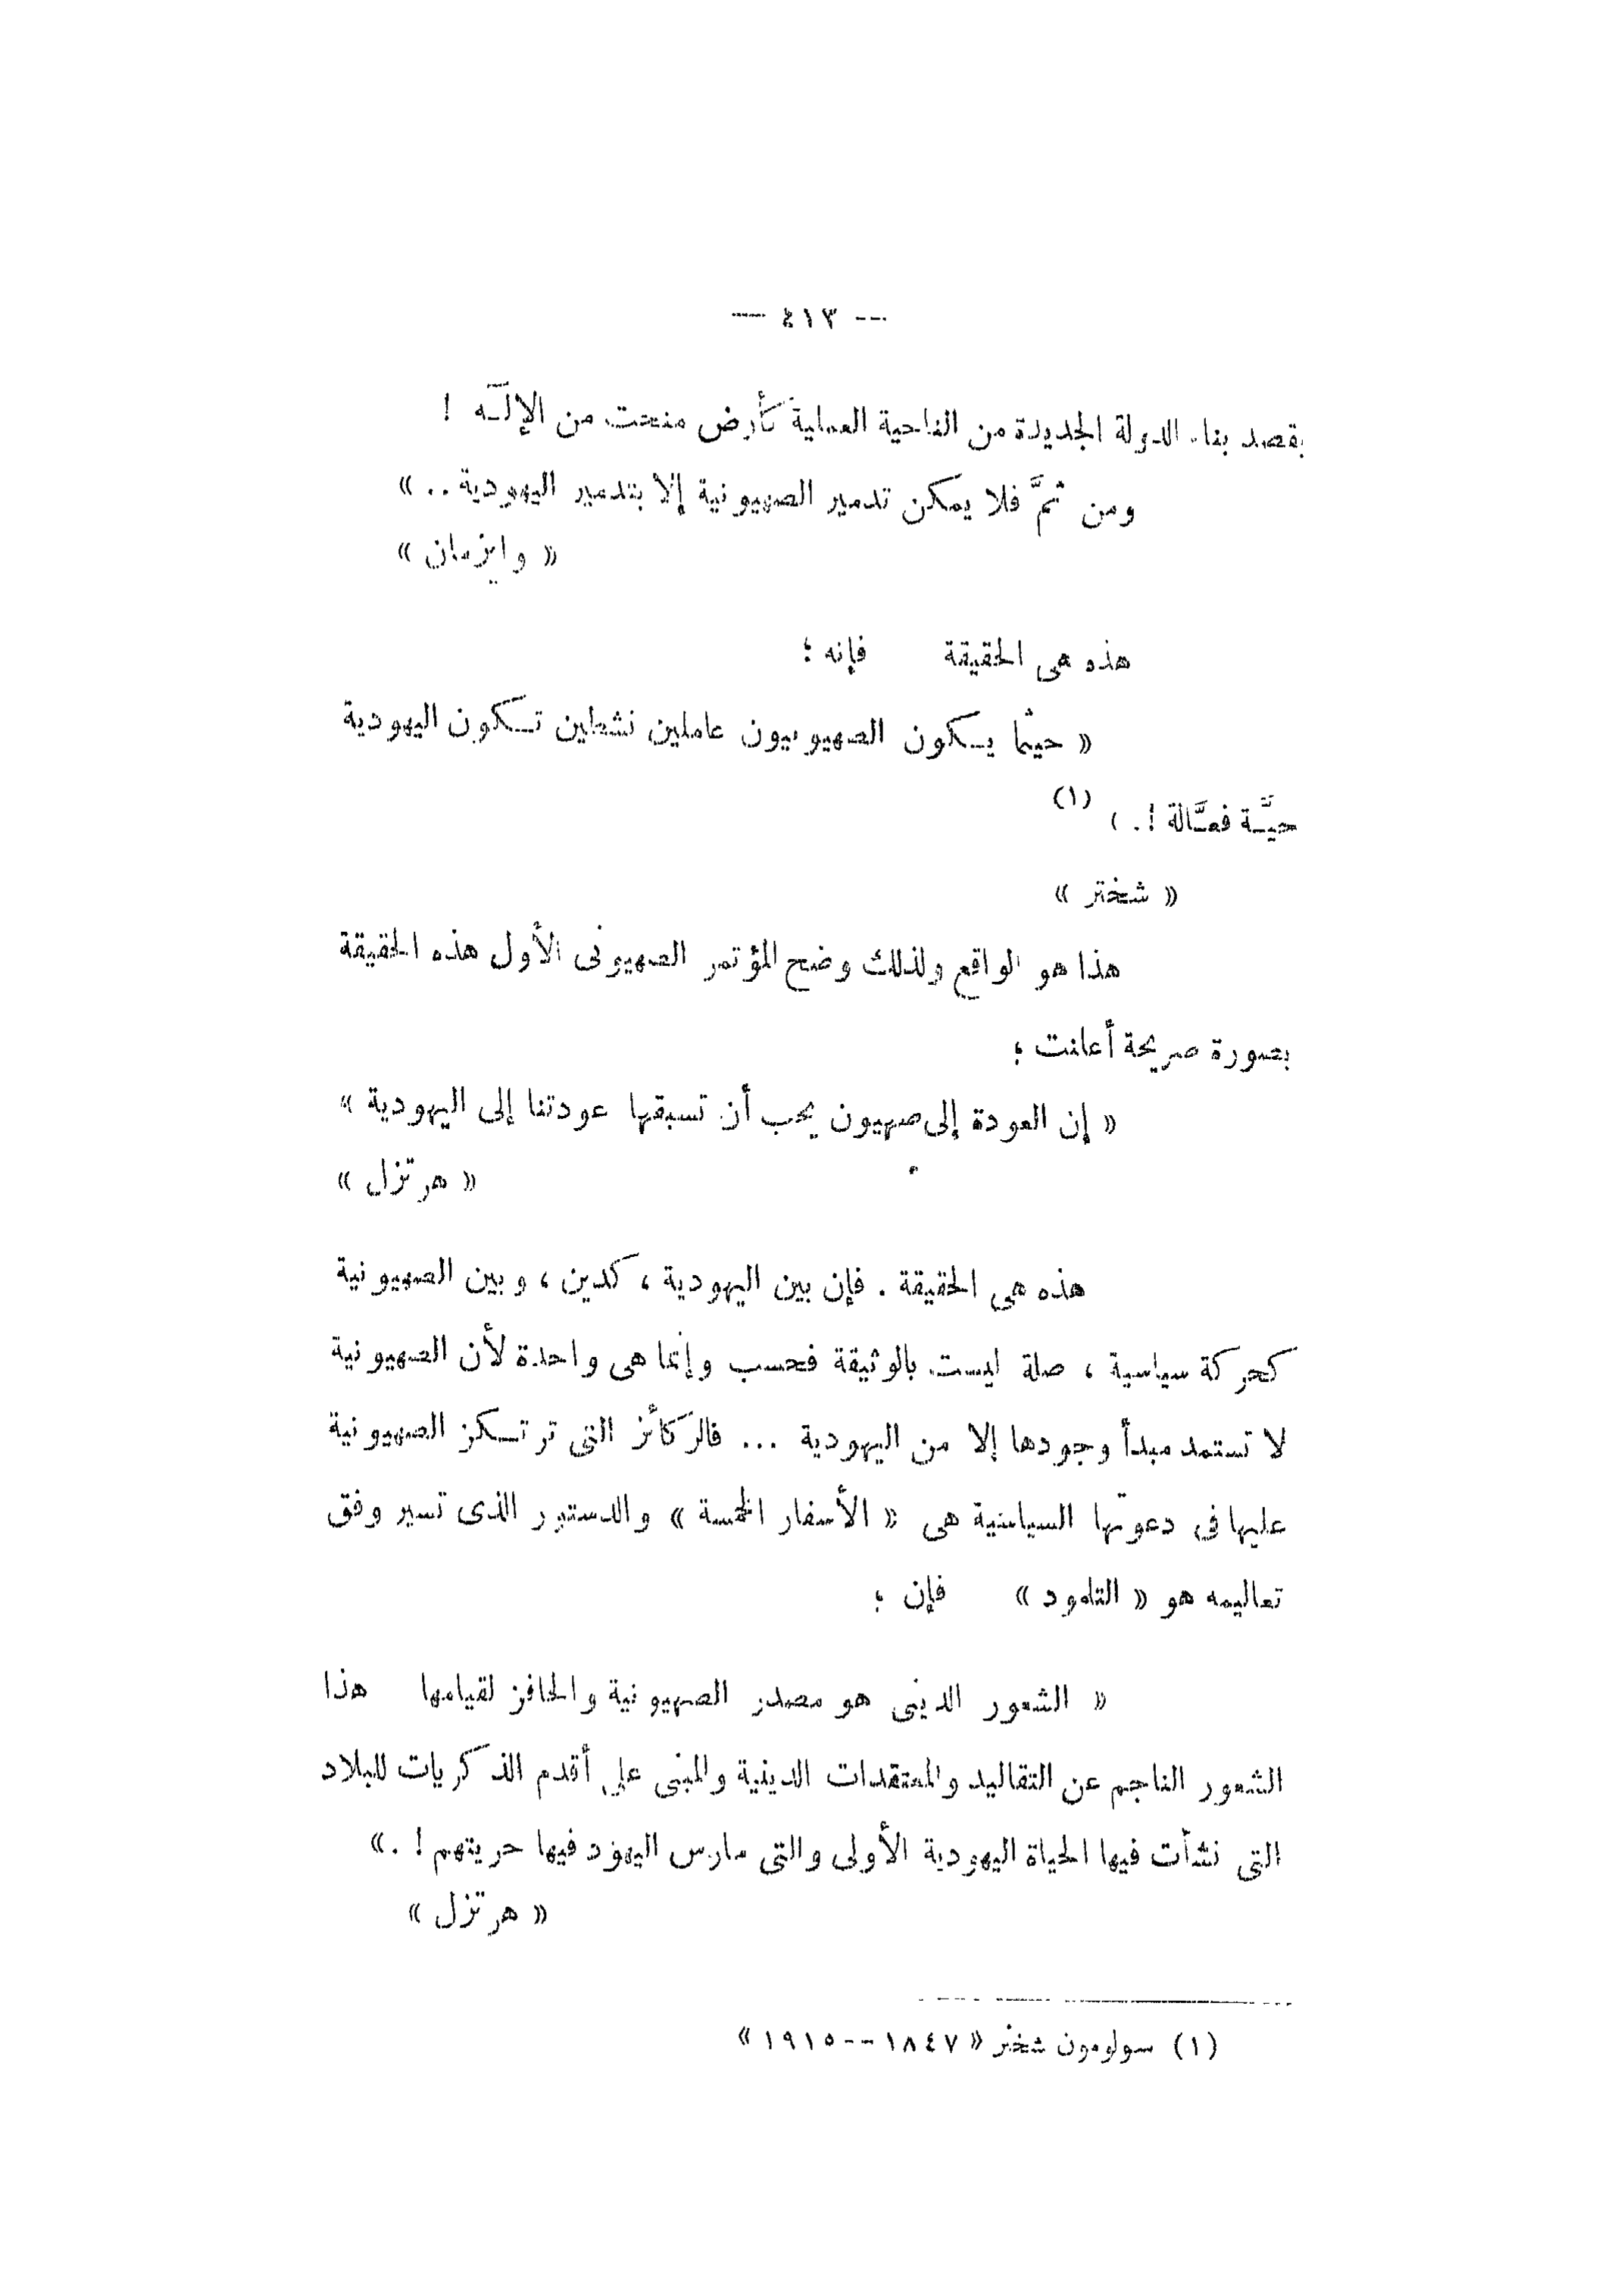 — ٤١٣ —
بقصد بناء الدولة الجديدة من الناحية العملية كأرض منحت من الإلـٓه !
ومن ثمَّ فلا يمكن تدمير الصهيونية إلا بتدمير اليهودية .. »
« وايزمان »
هذه هى الحقيقة فإنه ؛
« حيثما يـكون الصهيونيون عاملين نشطين تـكون اليهودية
حيَّـة فعـَّالة ! . » (١)
« شختر »
هذا هو الواقع ولذلك وضح المؤتمر الصهيونى الأول هذه الحقيقة
بصورة صريحة أعلنت ؛
« إن العودة إلى صهيون يجب أن تسبقها عودتنا إلى اليهودية »
« هرتزل »
هذه هى الحقيقة . فإن بين اليهودية ، كدين ، وبين الصهيونية
كحركة سياسية ، صلة ليست بالوثيقة فحسب وإنما هى واحدة لأن الصهيونية
لا تستمد مبدأ وجودها إلا من اليهودية ... فالركائز التى ترتـكز الصهيونية
عليها فى دعوتها السياسية هى « الأسفار الخمسة » والدستور الذى تسير وفق
تعاليمه هو « التلمود » فإن ؛
« الشعور الدينى هو مصدر الصهيونية والحافز لقيامها هذا
الشعور الناجم عن التقاليد والمعتقدات الدينية والمبنى على أقدم الذكريات للبلاد
التى نشأت فيها الحياة اليهودية الأولى والتى مارس اليهود فيها حريتهم ! . »
« هرتزل »
(١) سولومون شختر « ١٨٤٧--١٩١٥ »